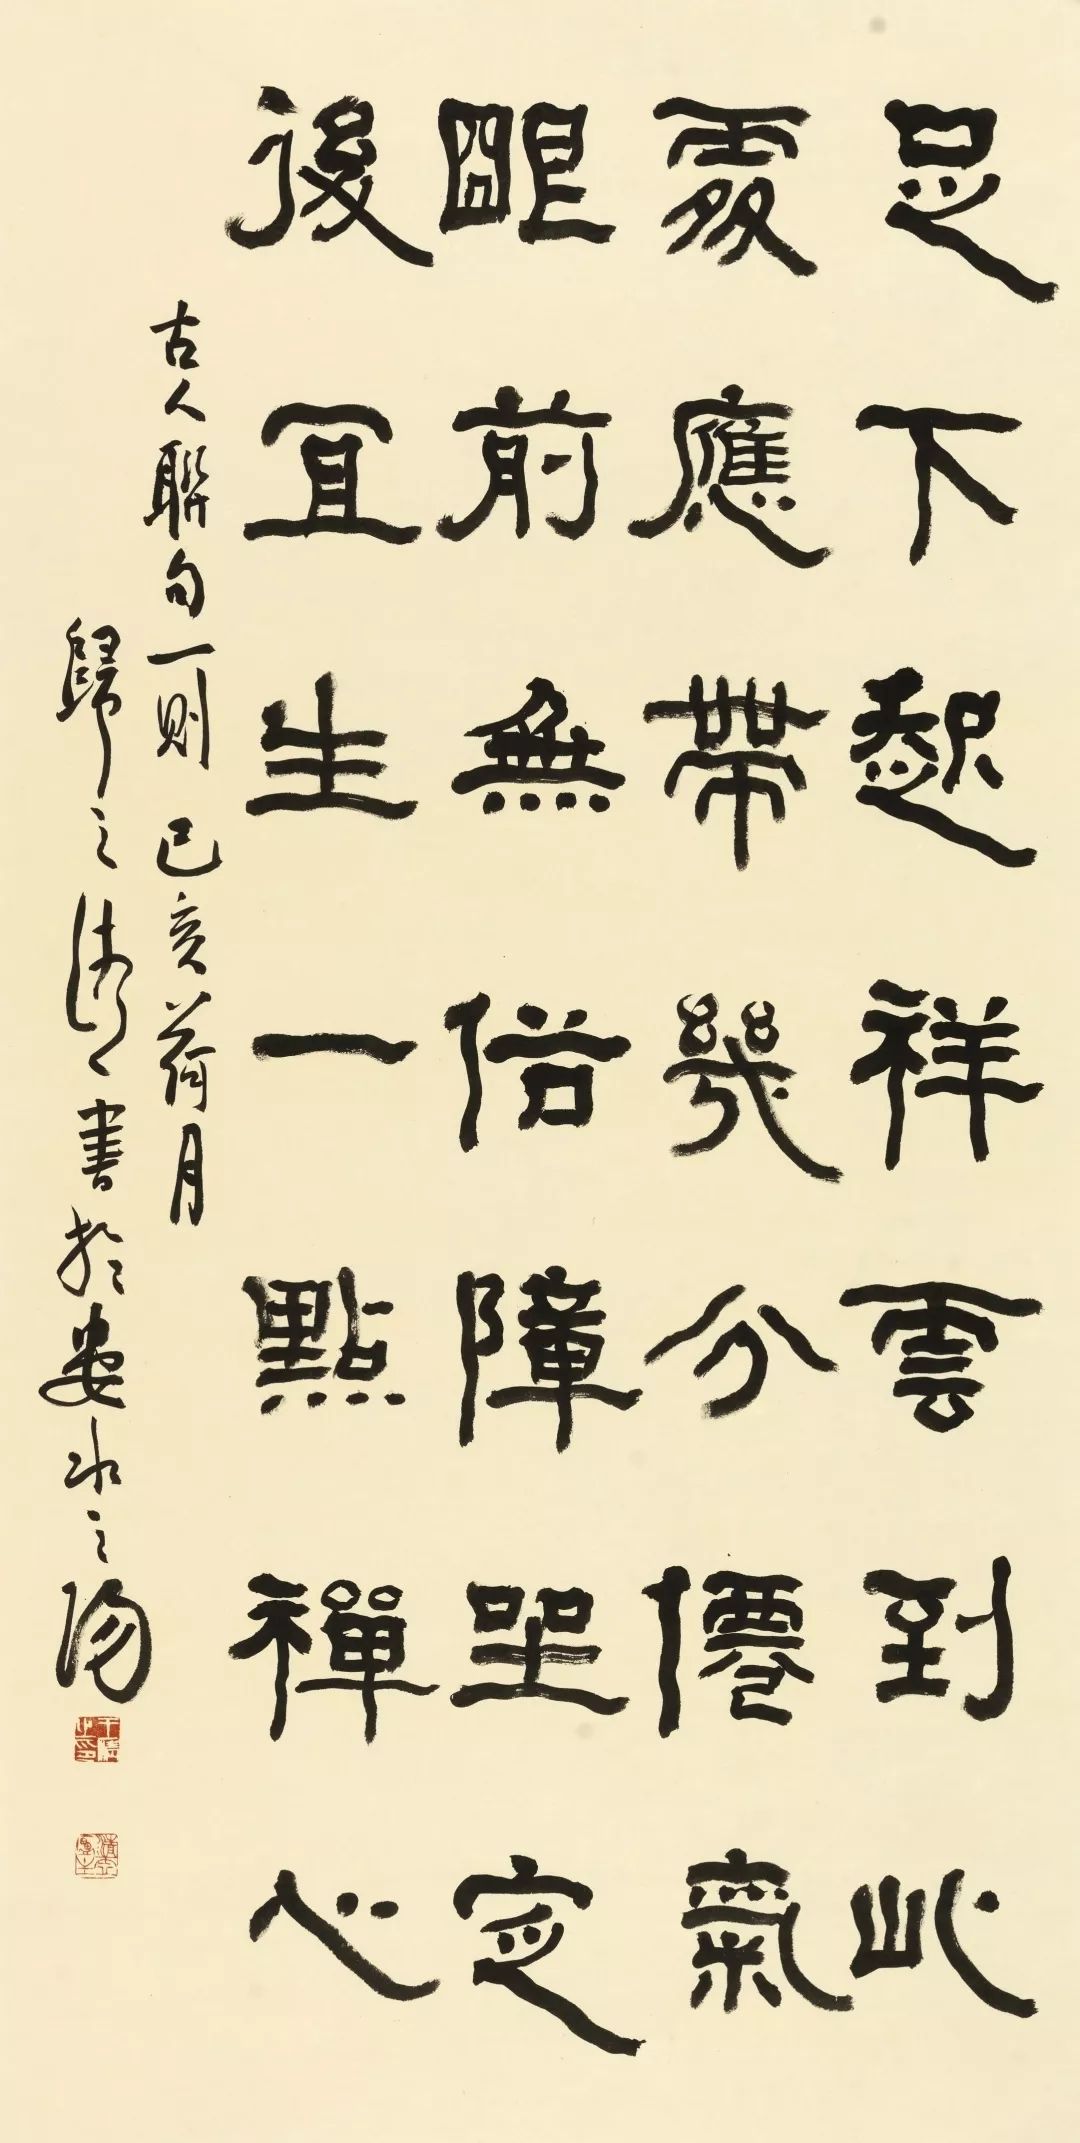 足下起祥雲到此
處應帶幾分僊氣
眼前無俗障坐定
後宜生一點禪心
古人聯句一則 己亥荷月
歸之清書於婁水之陽